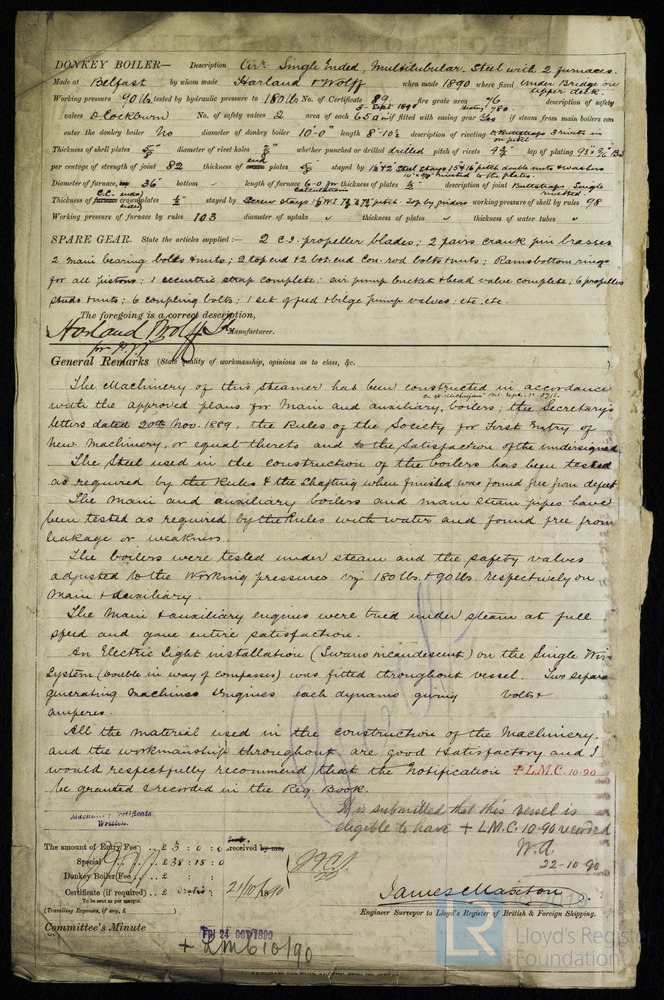 DONKEY BOILER— Description Cirr Single Ended, Multitubular, Steel with 2 furnaces.
Made at Belfast by whom made Harland & Wolff when made 1890 where fixed Under Bridge on upper deck
Working pressure 90 lb. tested by hydraulic pressure to 180 lb No. of Certificate 89 fire grate area 76 description of safety
valves D. Cockburn No. of safety valves 2 area of each if fitted with easing gear Yes if steam from main boilers can
enter the donkey boiler No diameter of donkey boiler 10'-0" length 8'-10½ description of riveting
Thickness of shell plates diameter of rivet holes whether punched or drilled drilled pitch of rivets lap of plating
per centage of strength of joint 82 thickness of end plates stayed by Steel stays pitch double nuts & washers
Diameter of furnace, 36" bottom length of furnace 6-0 thickness of plates ½" description of joint Buttstraps Single riveted.
Thickness of plates ½" stayed by Screw stays working pressure of shell by rules 98
Working pressure of furnace by rules 103 diameter of uptake " thickness of plates " thickness of water tubes "
SPARE GEAR. State the articles supplied:— 2 C.I. propeller blades; 2 pairs crank pin brasses
2 main bearing bolts & nuts; 2 top end & 2 bot. end con-rod bolts & nuts; Ramsbottom rings
for all pistons; 1 eccentric strap complete; air pump bucket & head valve complete; 6 propeller
studs & nuts; 6 coupling bolts; 1 set of feed & bilge pump valves; etc. etc.
The foregoing is a correct description,
Harland Wolff Ld Manufacturer.
General Remarks (State quality of workmanship, opinions as to class, &c.
The Machinery of this Steamer has been constructed in accordance
with the approved plans for Main and auxiliary boilers; the Secretary's
letters dated 20th Nov. 1889, the Rules of the Society for First Entry of
New Machinery, or equal thereto and to the Satisfaction of the undersigned.
The Steel used in the construction of the boilers has been tested
as required by the Rules & the Shafting when finished was found free from defect
The Main and auxiliary boilers and main steam pipes have
been tested as required by the Rules with water and found free from
leakage or weakness.
The boilers were tested under steam and the safety valves
adjusted to the Working pressures viz 180 lbs. & 90 lbs. respectively on
Main & Auxiliary.
The Main & auxiliary engines were tried under steam at full
speed and gave entire satisfaction.
An Electric Light installation (Swans incandescent) on the Single Wire
System (double in way of compasses) was fitted throughout vessel. Two separate
generating Machines & Engines each dynamo giving volts &
amperes.
All the material used in the construction of the Machinery,
and the workmanship throughout are good & satisfactory and I
would respectfully recommend that the Notification + L.M.C. 10-90
be granted & recorded in the Reg. Book.
It is submitted that this vessel is
eligible to have + L.M.C. 10-90 recorded
W.A.
22-10-90
Machinery Certificate
Written.
The amount of Entry Fee .. £ 3 : 0 : 0 received by me,
Special .. £ 38 : 15 : 0
Donkey Boiler Fee .. £ : :
Certificate (if required) .. £ gratis : 21/10/1890
To be sent as per margin.
(Travelling Expenses, if any, £ )
James Maxton
Engineer Surveyor to Lloyd's Register of British & Foreign Shipping.
Committee's Minute
FRI 24 OCT 1890
+ LMC 10/90
LR Lloyd's Register
Foundation